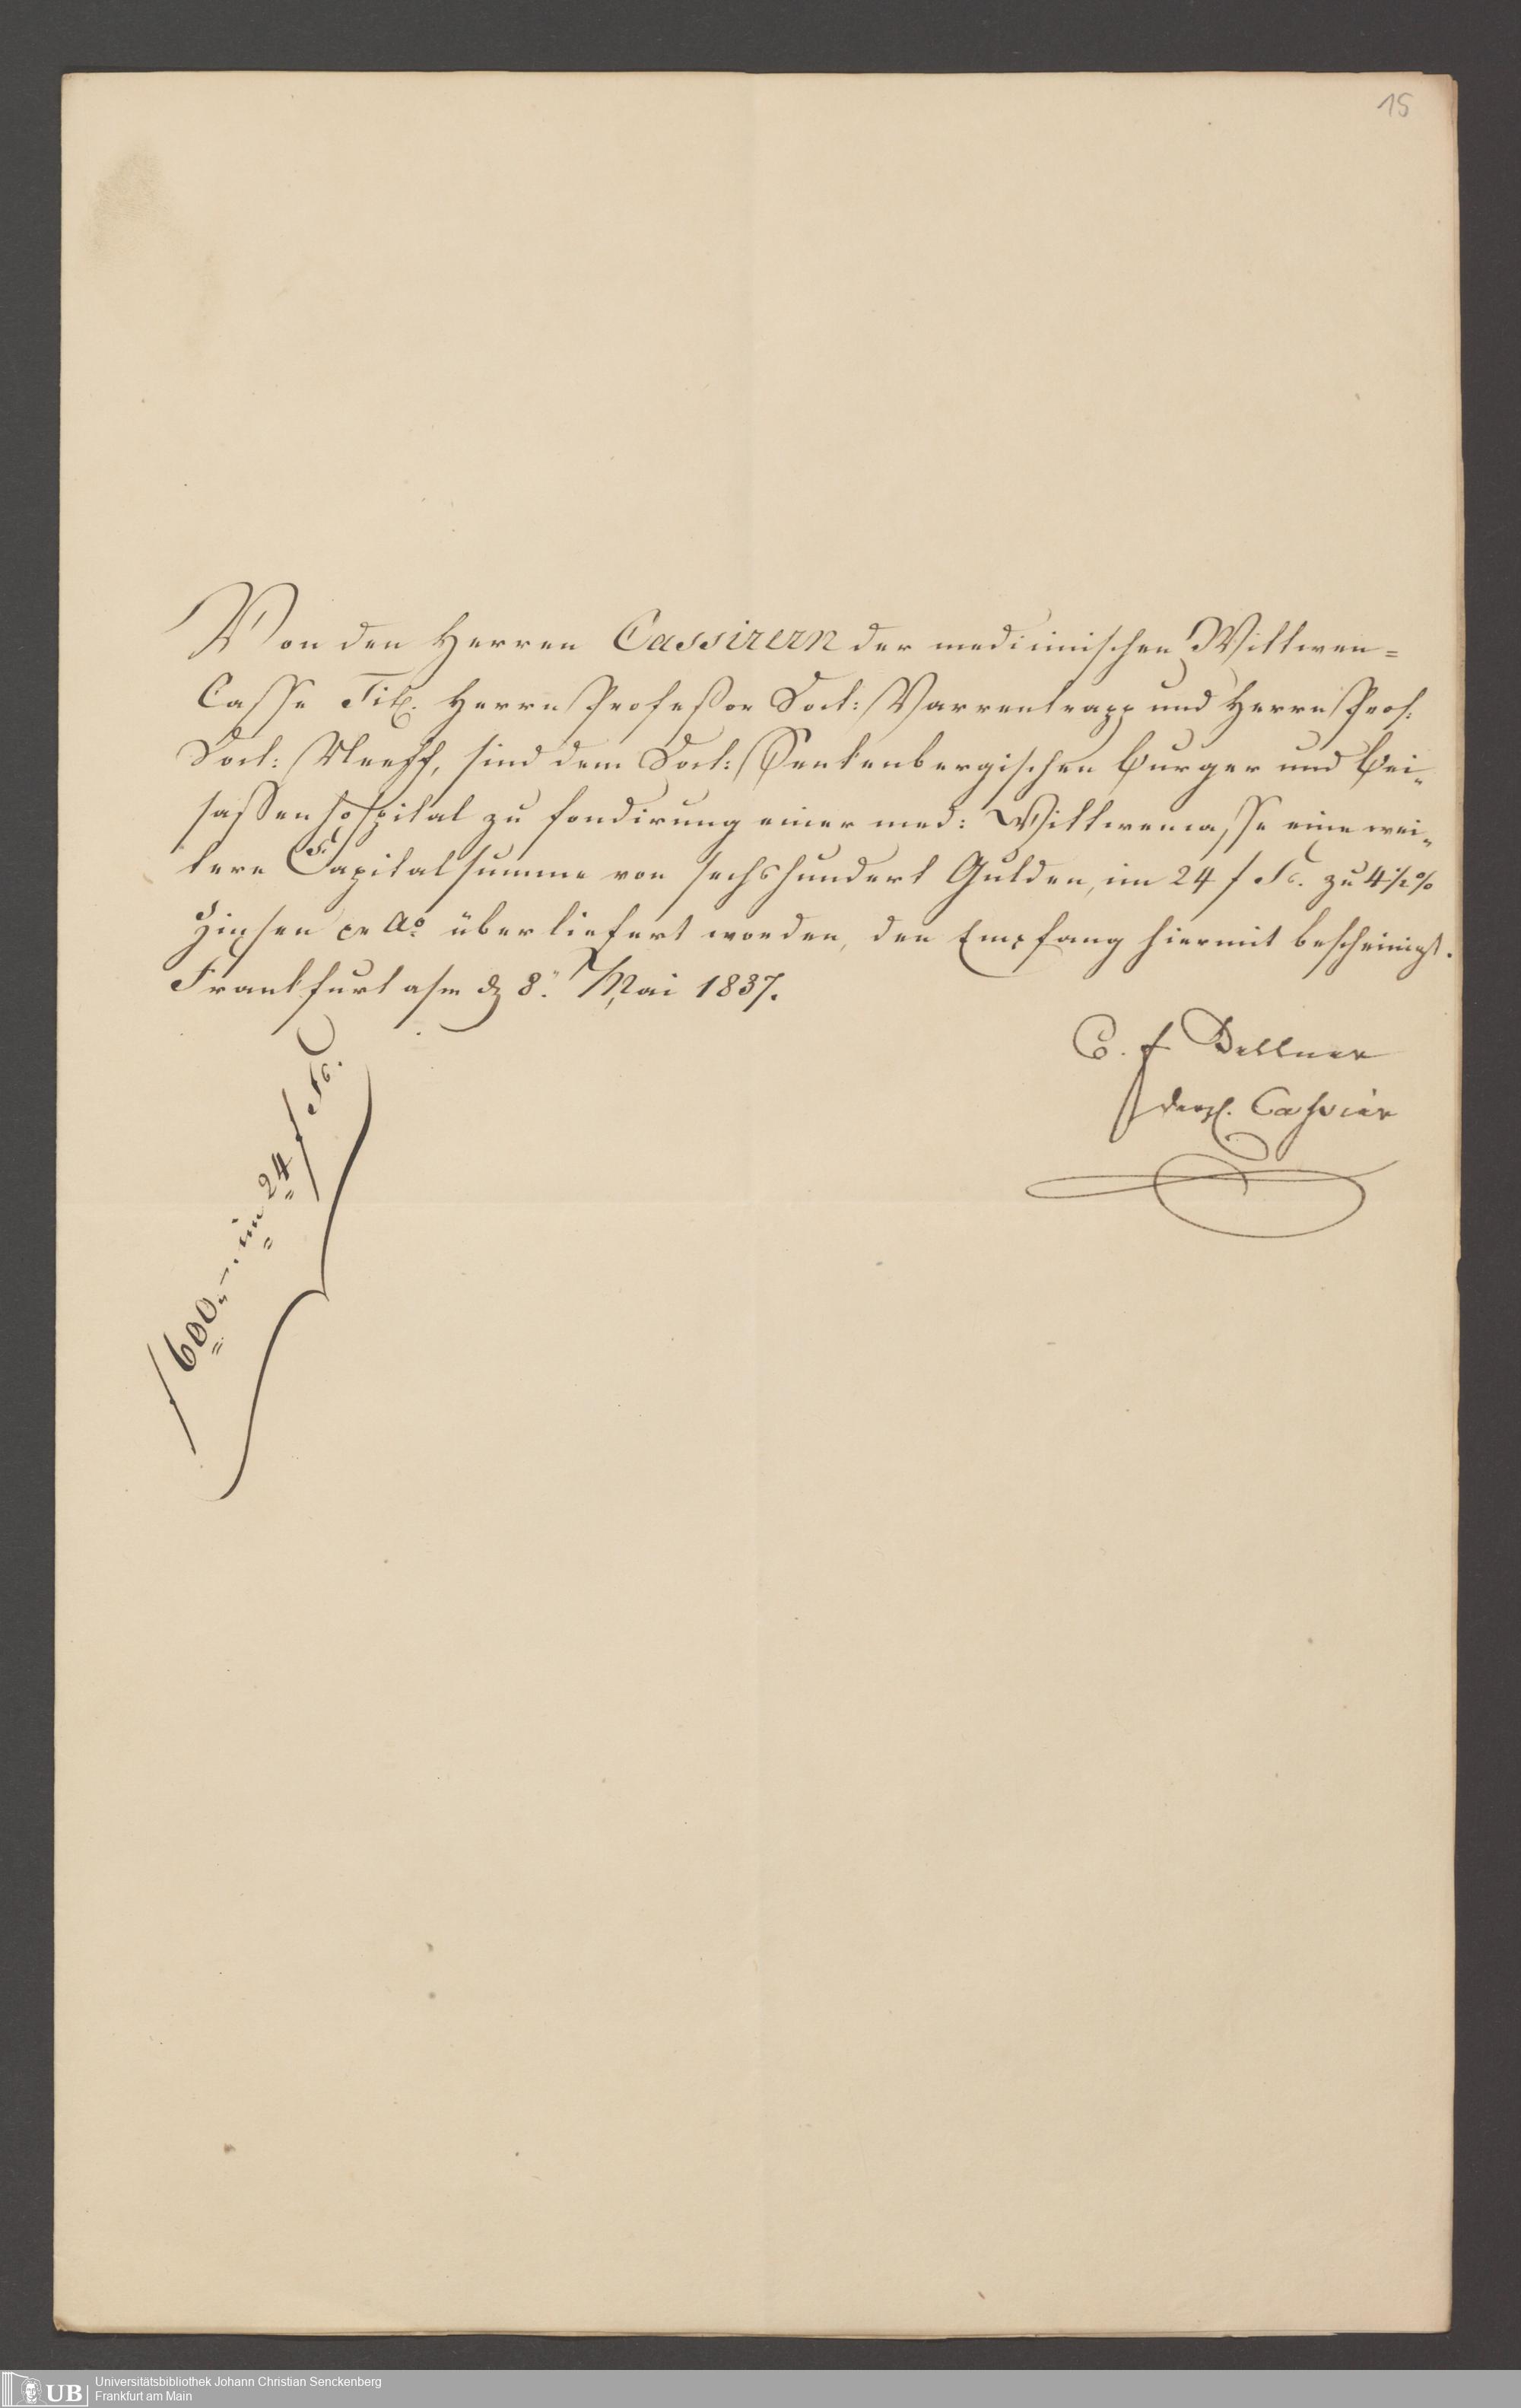 15
Von den Herren Cassirern der medicinischen Wittwen=
Casse Tit. Herrn Profeßor Doct: Varrentrapp und Herrn Prof:
Doct: Neeff, sind dem Doct: Senkenbergischen Burger und Bei-
saßenhospital zu fondirung einer med: Wittwencasse eine wei-
tere Capitalsumme von sechshundert Gulden, im 24 f Fs. zu 4½%
Zinsen pr Ao. überliefert worden, den Empfang hiermit bescheinigt.
Frankfurt a/m d 8. Mai 1837.
C. F. Dellner
Cassier
f 600.–. im 24 f Fs.
UB
Universitätsbibliothek Johann Christian Senckenberg
Frankfurt am Main